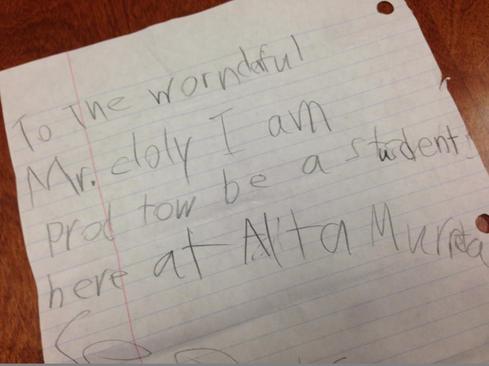 To The worndaful
Mr. cloly I am
prod tow be a student
here at Alta Murrta